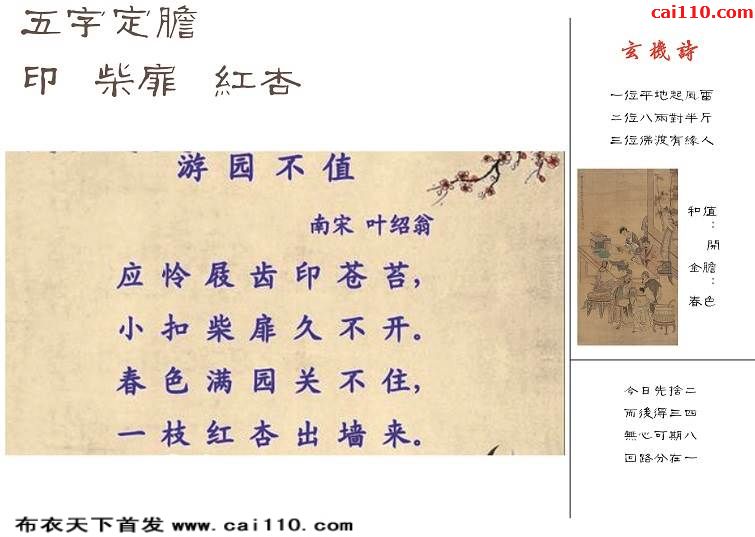 五字定膽
印 柴扉 紅杏
游园不值
南宋 叶绍翁
应怜屐齿印苍苔，
小扣柴扉久不开。
春色满园关不住，
一枝红杏出墙来。
布衣天下首发 www.cai110.com
cai110.com
玄機詩
一位平地起風雷
二位八兩對半斤
三位佛渡有緣人
和值：
開
金膽：
春色
今日先捨二
而後得三四
無心可期八
回路分在一